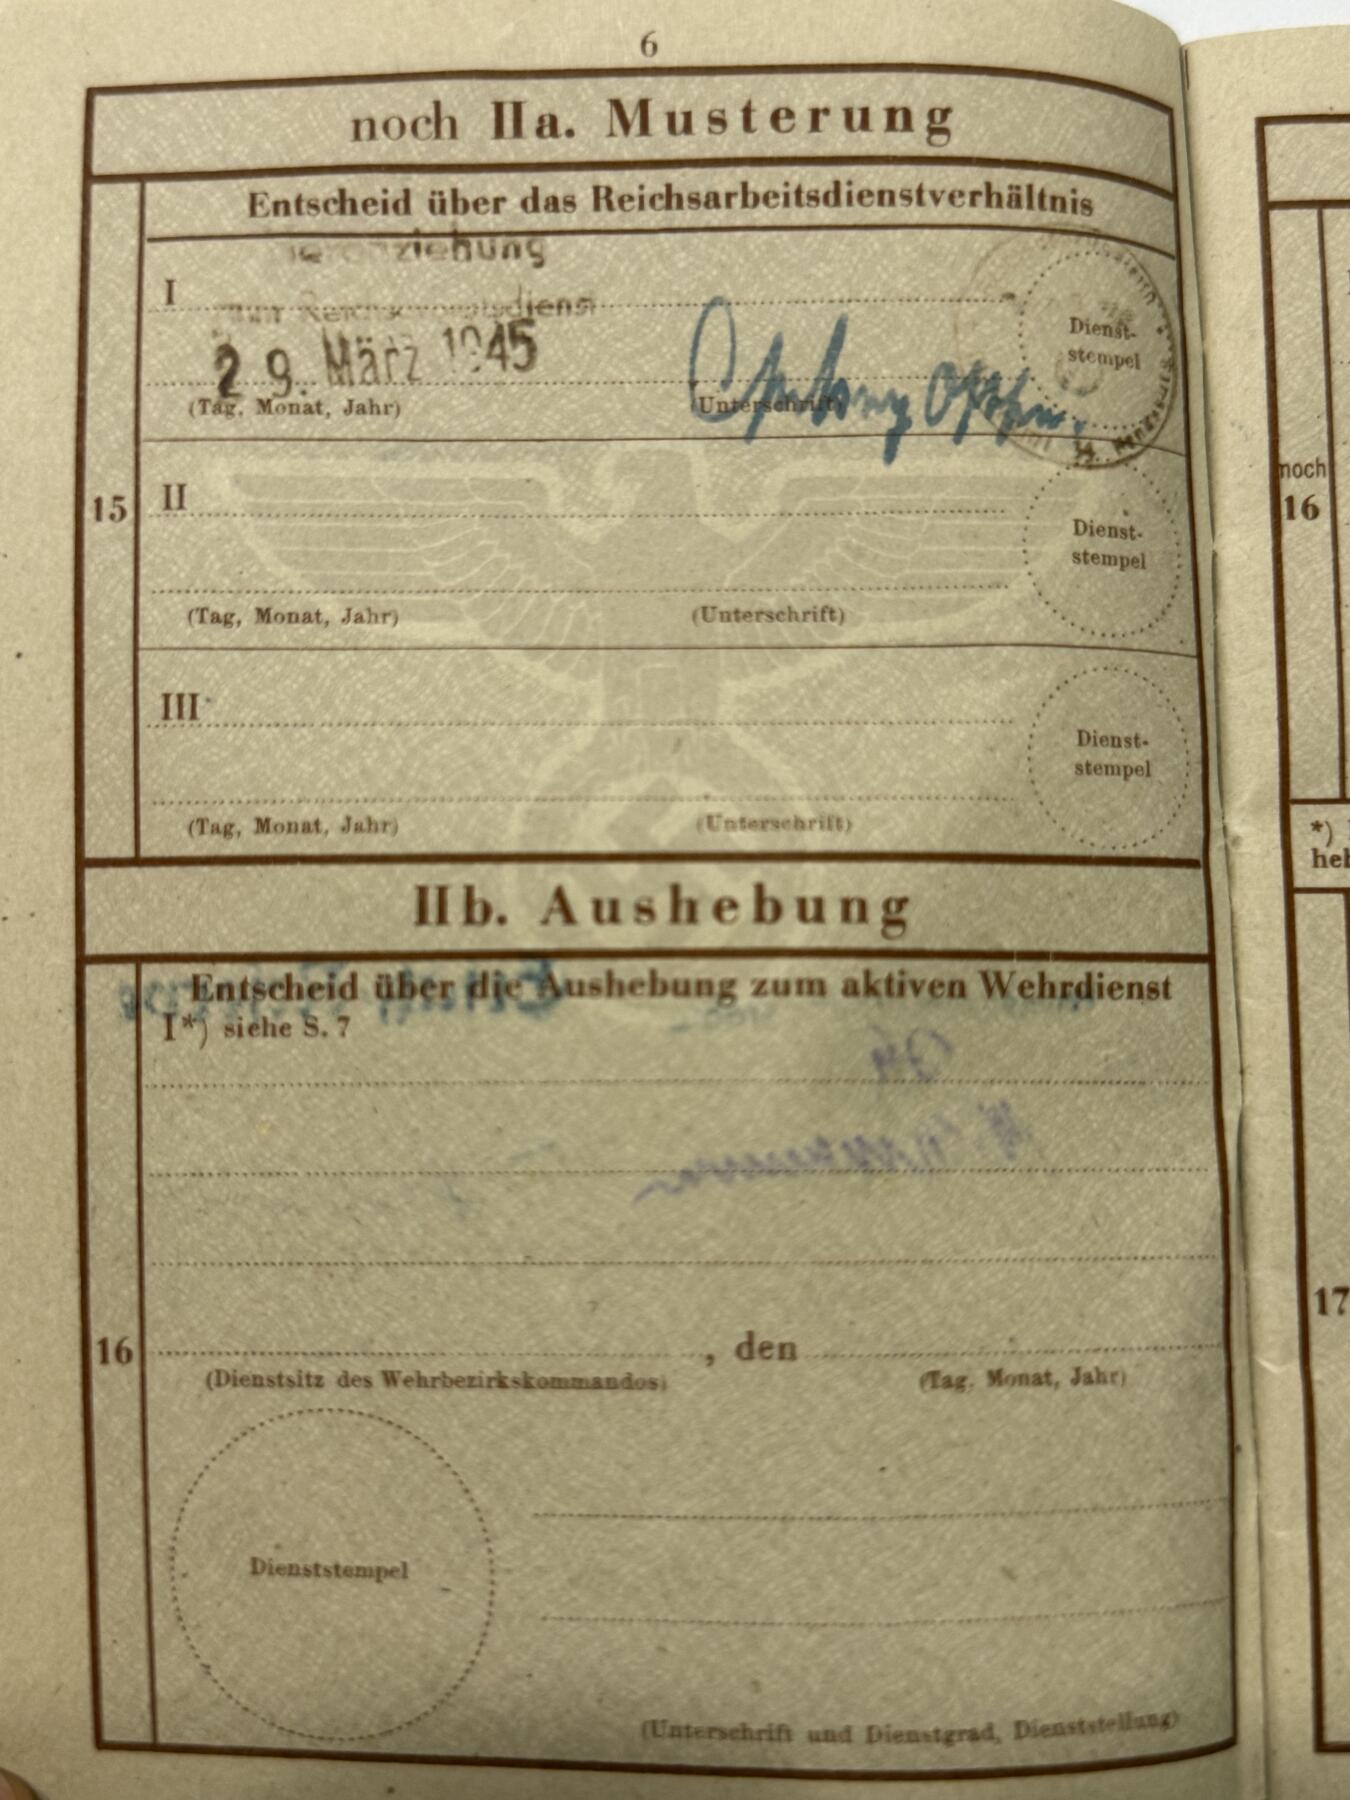 6
noch IIa. Musterung
Entscheid über das Reichsarbeitsdienstverhältnis
I
29. März 1945
(Tag, Monat, Jahr)
(Unterschrift)
Dienst-
stempel
15
II
(Tag, Monat, Jahr)
(Unterschrift)
Dienst-
stempel
III
(Tag, Monat, Jahr)
(Unterschrift)
Dienst-
stempel
IIb. Aushebung
Entscheid über die Aushebung zum aktiven Wehrdienst
I*) siehe S. 7
16
, den
(Dienstsitz des Wehrbezirkskommandos)
(Tag, Monat, Jahr)
Dienststempel
(Unterschrift und Dienstgrad, Dienststellung)
noch
16
*)
17